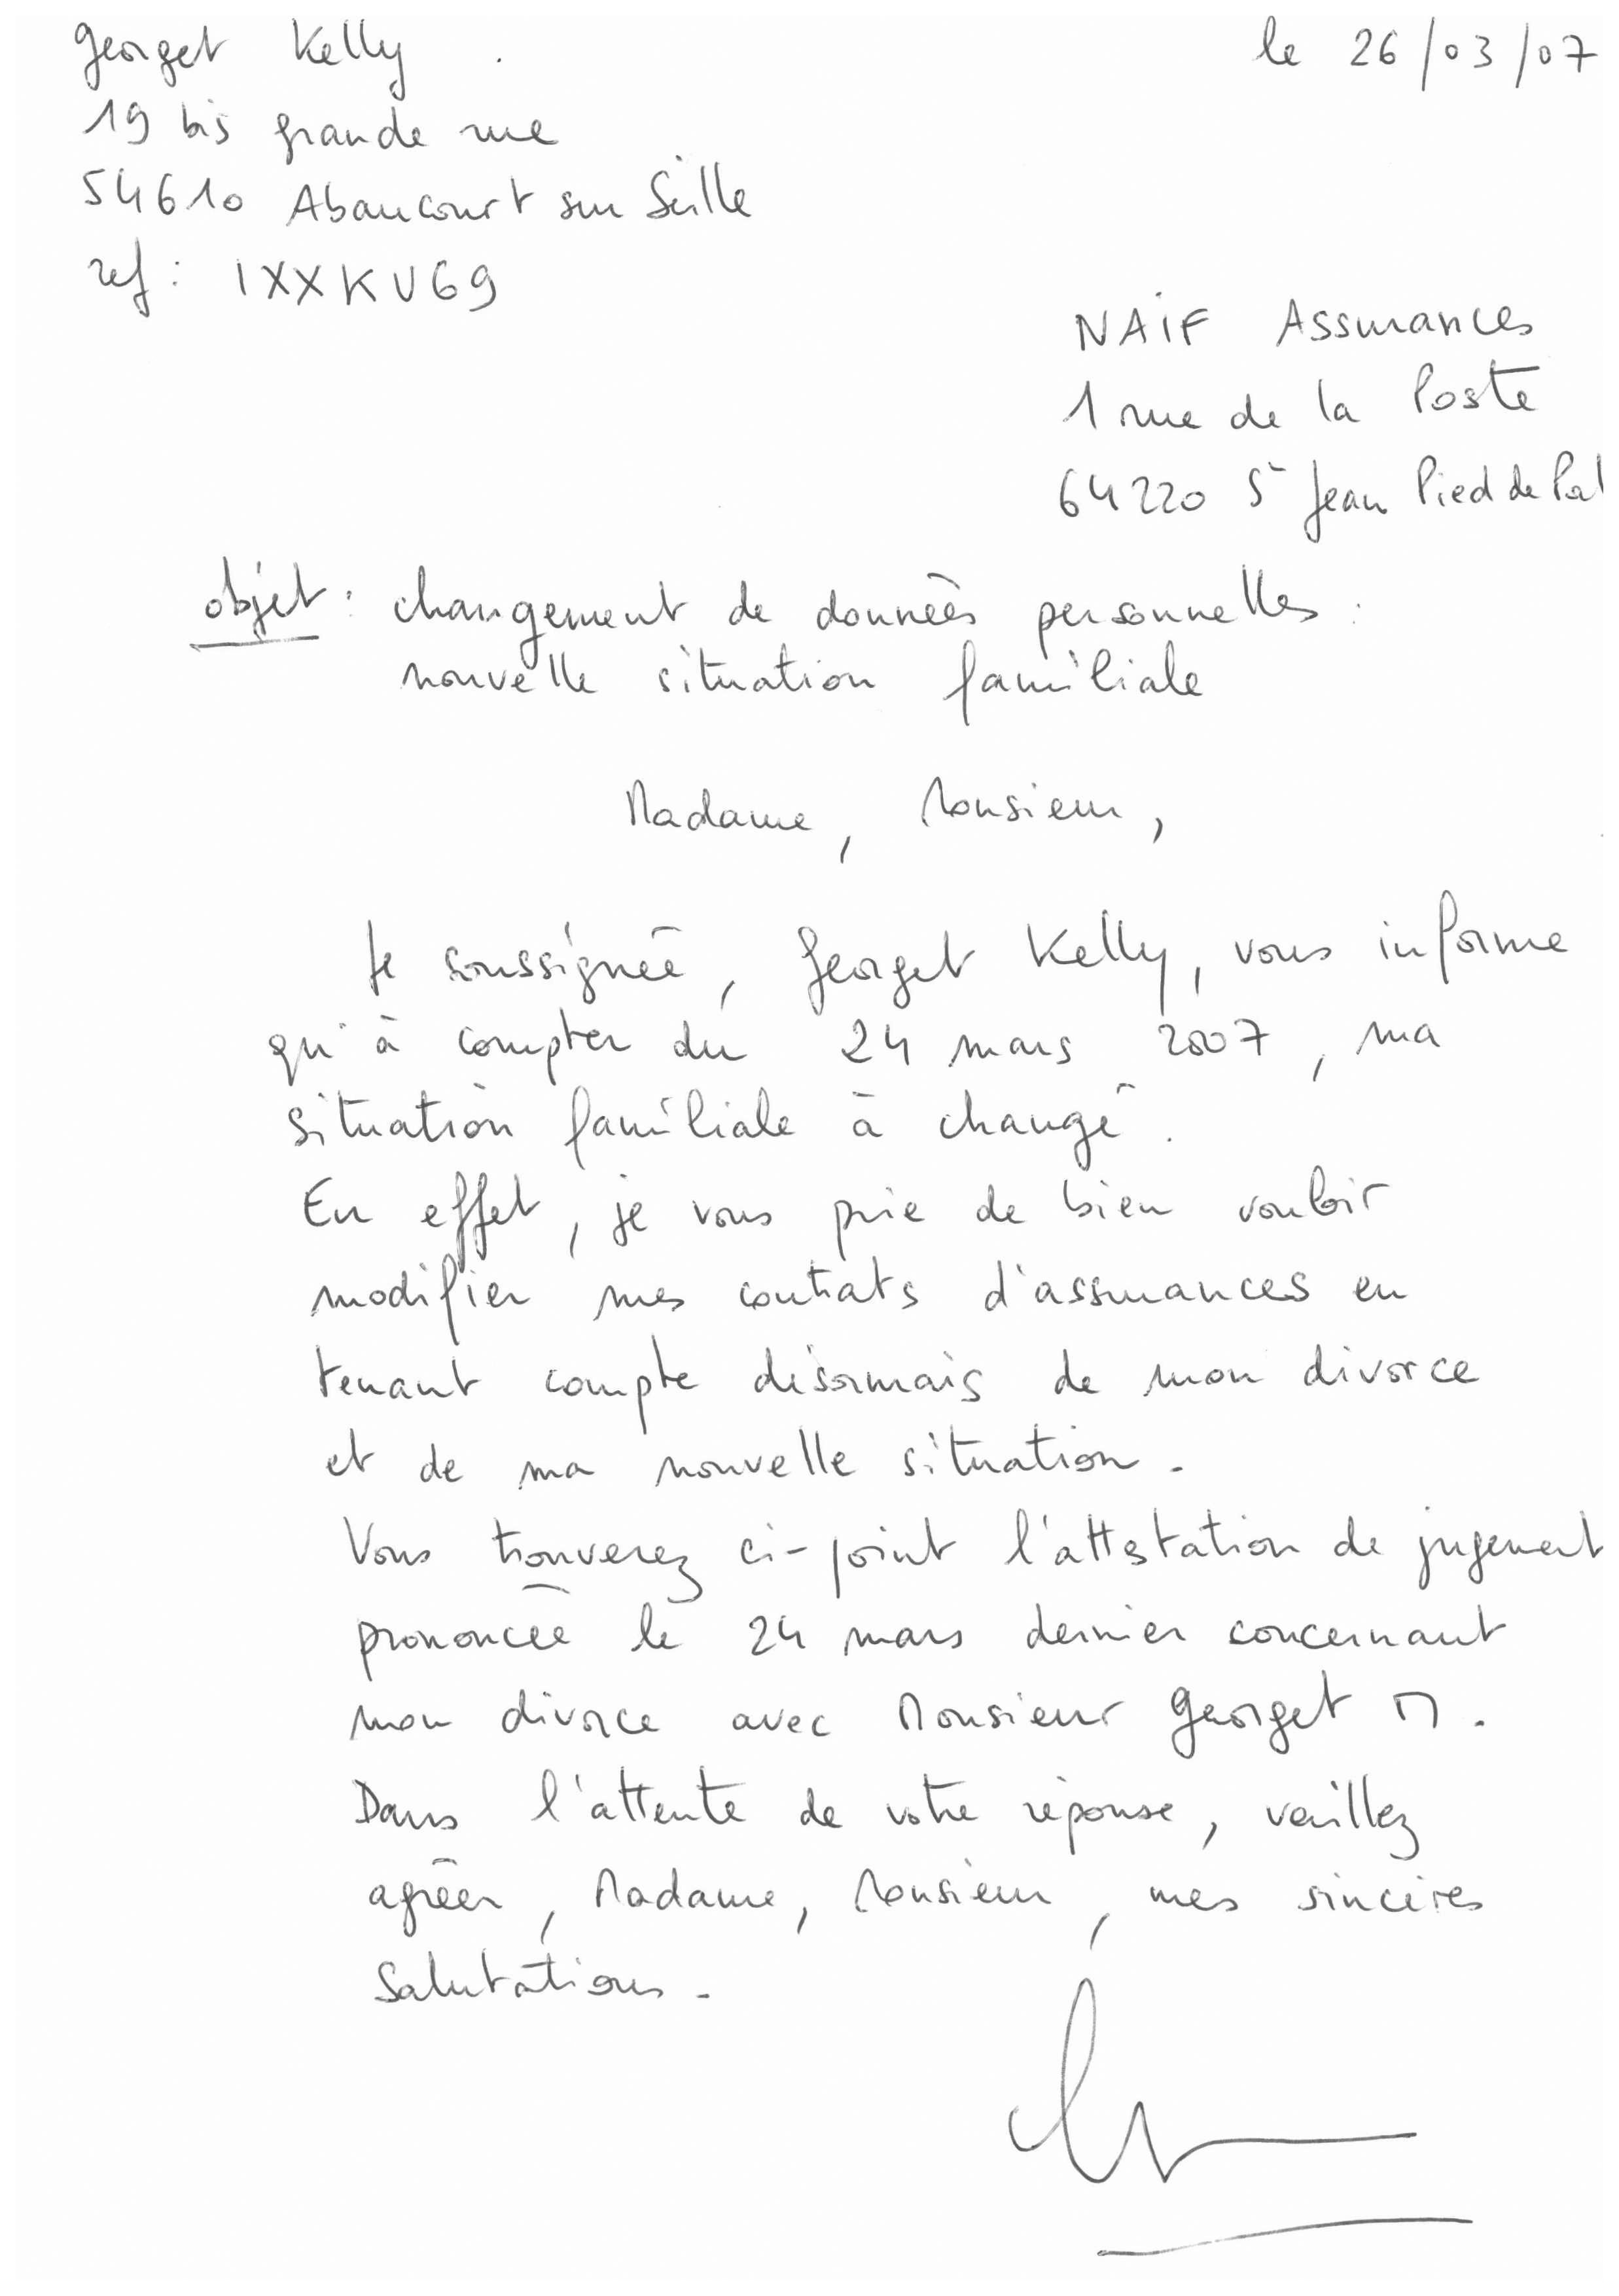 Georget Kelly
le 26/03/07
19 bis grande rue
54610 Abaucourt sur Seille
ref : IXXKV69
NAIF Assurances
1 rue de la Poste
64220 St Jean Pied de Po
objet : changement de données personnelles :
nouvelle situation familiale
Madame, Monsieur,
Je soussignée, Georget Kelly, vous informe
qu'à compter du 24 mars 2007, ma
situation familiale à changé.
En effet, je vous prie de bien vouloir
modifier mes contrats d'assurances en
tenant compte désormais de mon divorce
et de ma nouvelle situation.
Vous trouverez ci-joint l'attestation de jugement
prononcée le 24 mars dernier concernant
mon divorce avec Monsieur Georget M.
Dans l'attente de votre réponse, veuillez
agréer, Madame, Monsieur, mes sincères
Salutations.